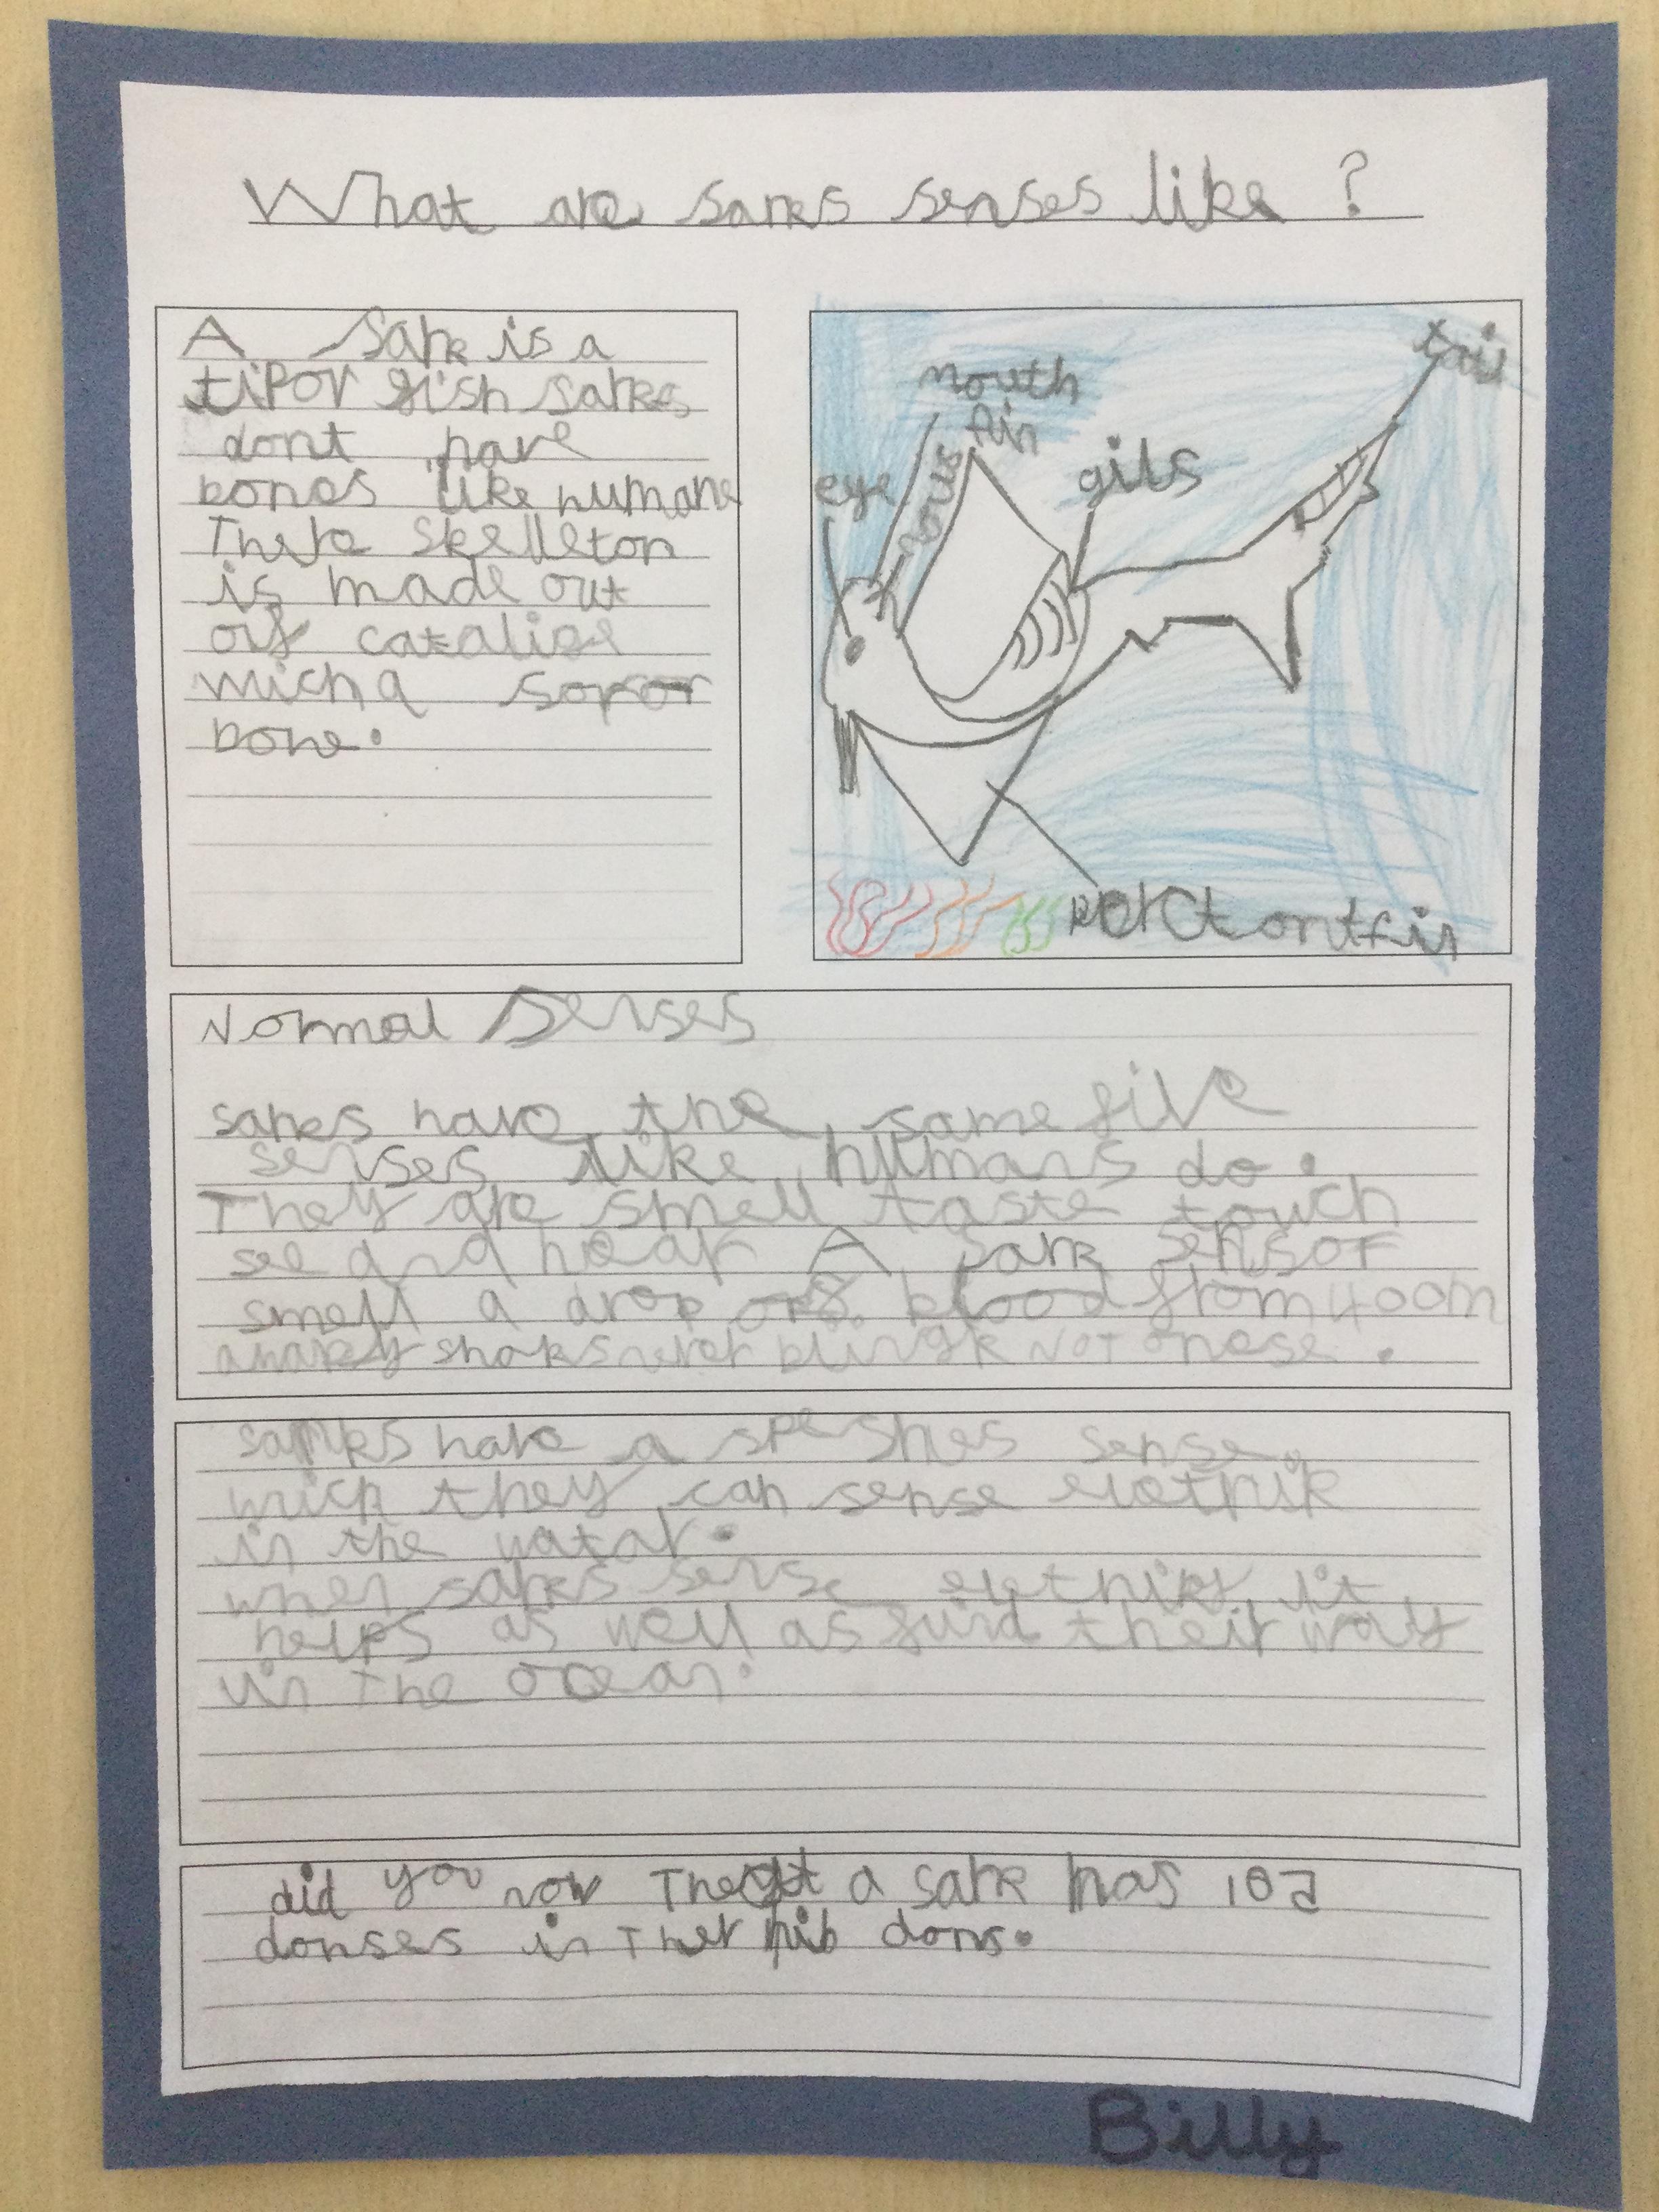 What are sarks senses like ?
A Sark is a
tipor fish sarks
dont have
bones like humans
There skelleton
is made out
of catalige
wich a
bone.
mouth
fin
eye
gills
tail
fin
Normal Senses
sarks have the same five
senses like humans do.
They are smell taste touch
see and hear A sark
smell a drop of blood from 400m
sharks never blingk not onese.
sarks have a speshies sense
wich they can sense eletrik
in the watar.
when sarks sense it
helps as well as find their way
in the ocean.
did you now That a sark has 102
donses in Ther hib dons.
Billy